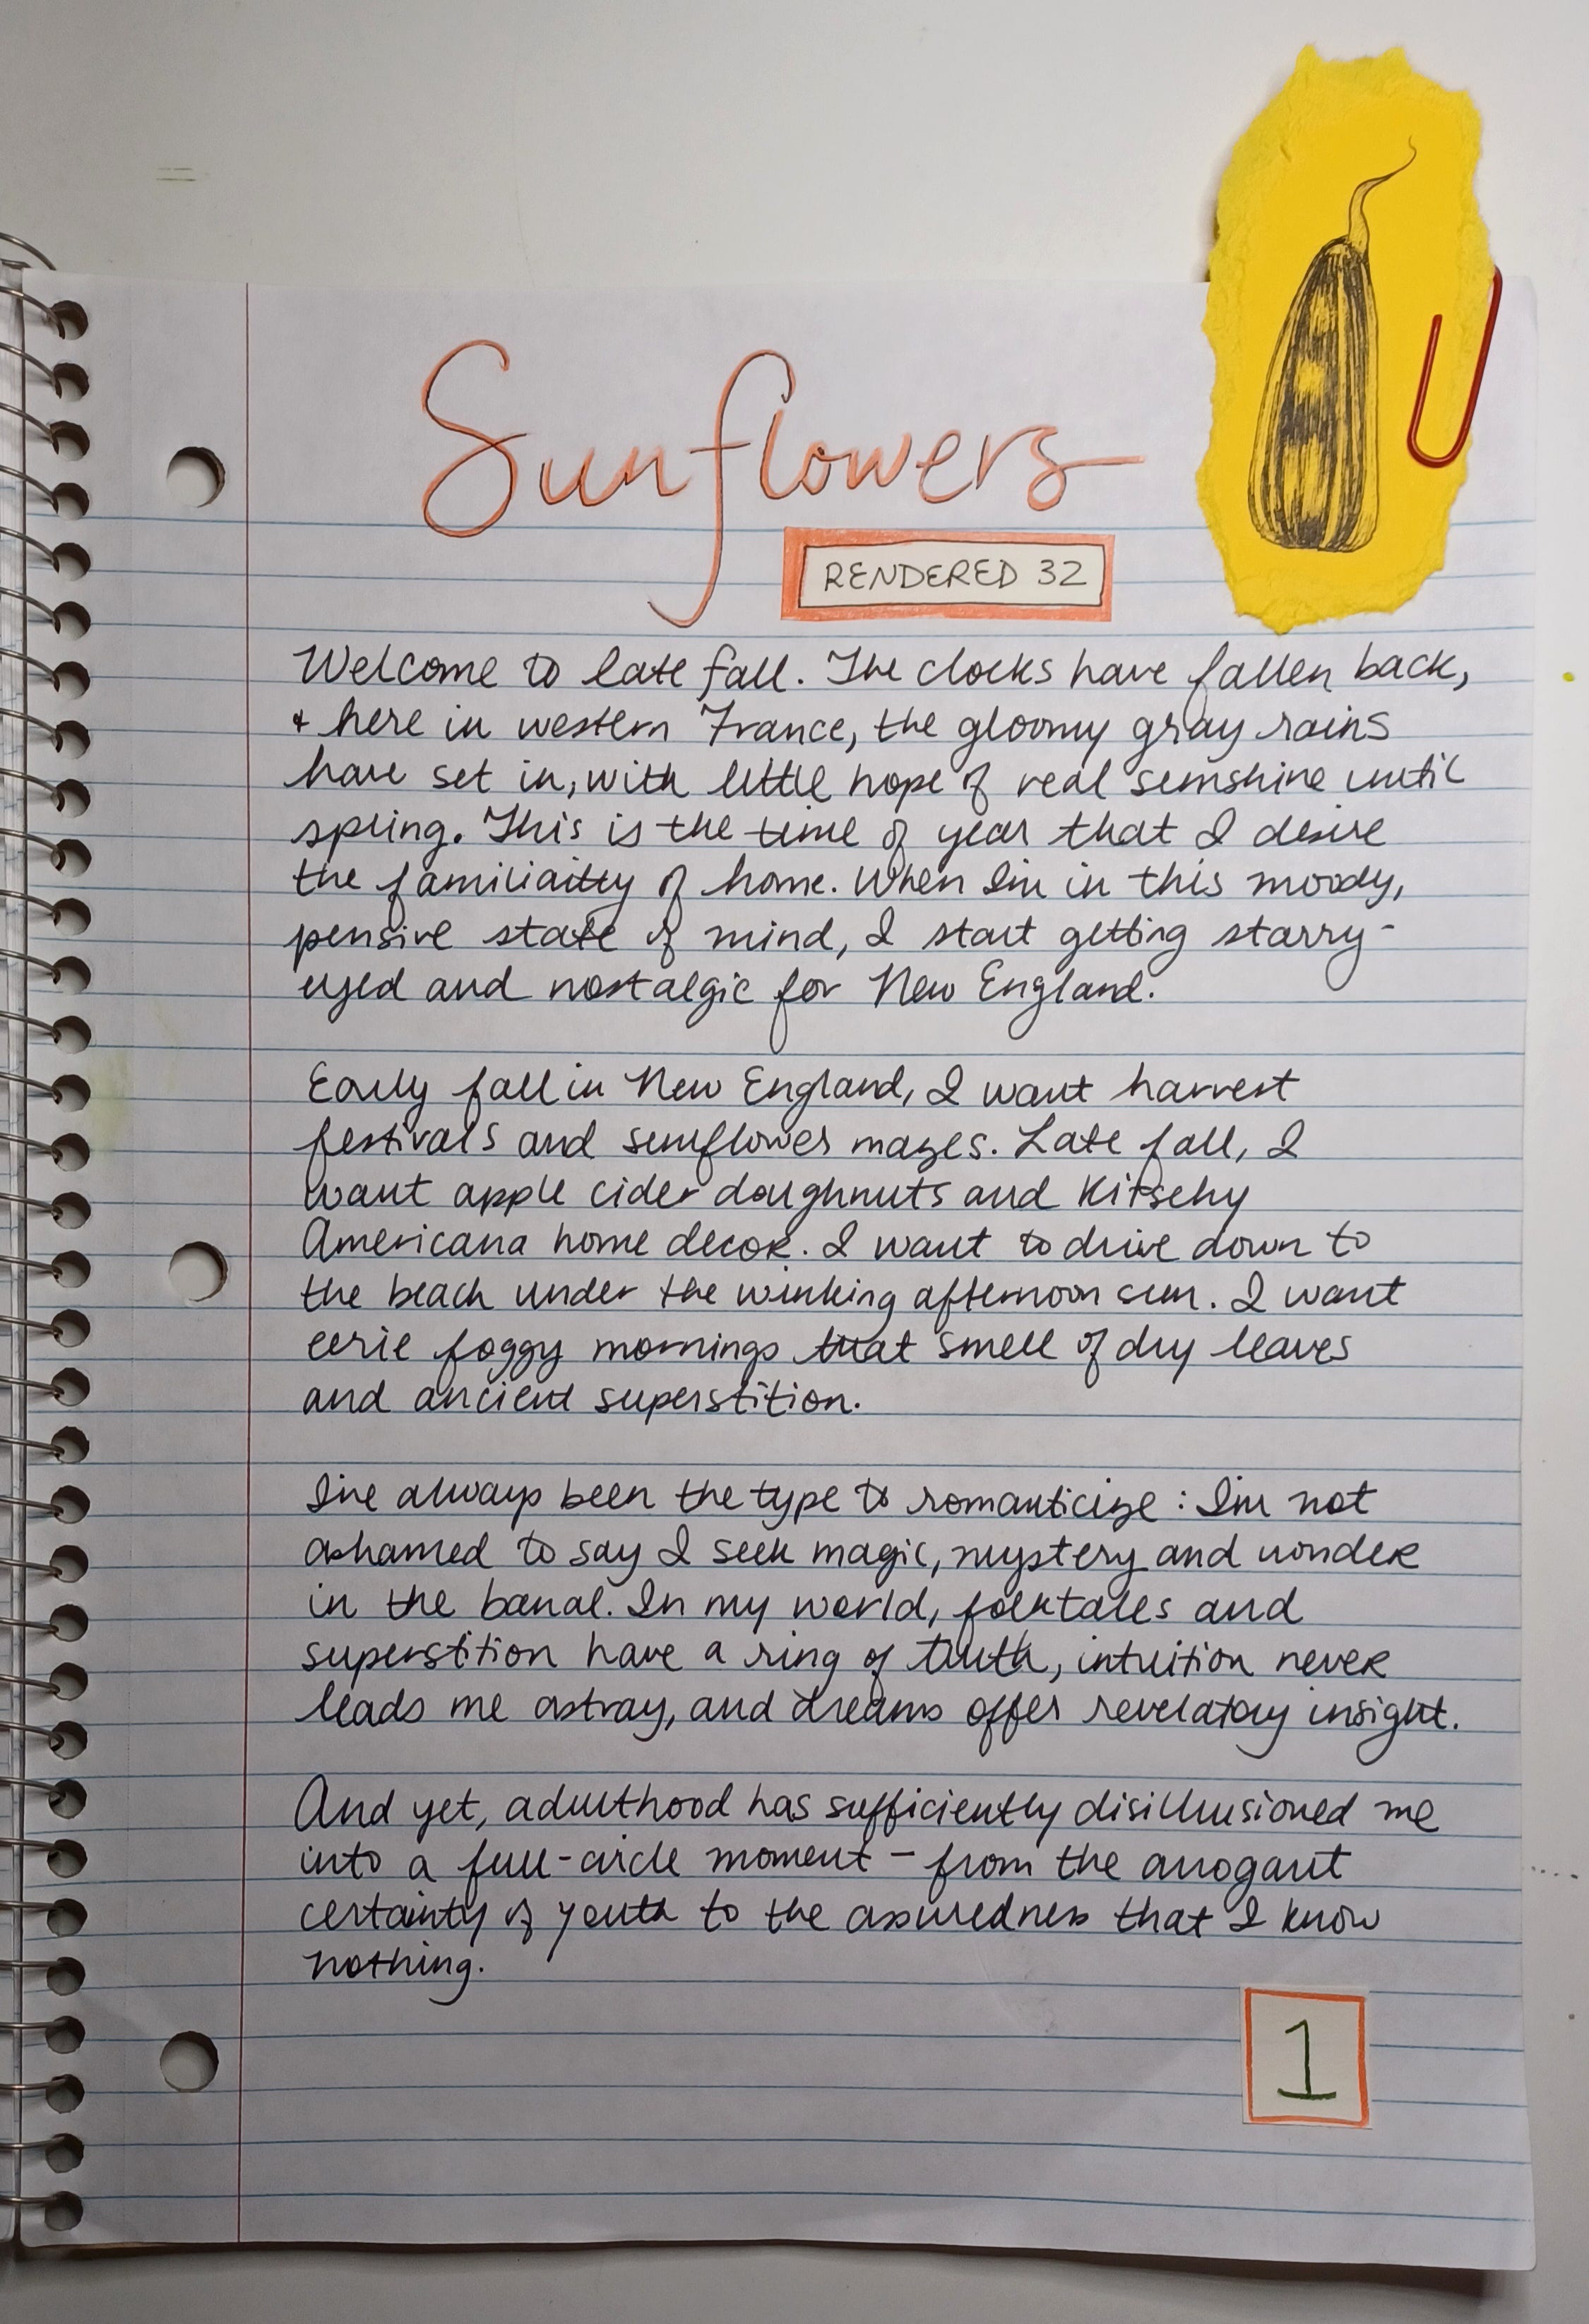 Sunflowers
RENDERED 32
Welcome to late fall. The clocks have fallen back,
+ here in western France, the gloomy gray rains
have set in, with little hope of real sunshine until
spring. This is the time of year that I desire
the familiarity of home. When I'm in this moody,
pensive state of mind, I start getting starry-
eyed and nostalgic for New England.
Early fall in New England, I want harvest
festivals and sunflower mazes. Late fall, I
want apple cider doughnuts and kitschy
Americana home decor. I want to drive down to
the beach under the winking afternoon sun. I want
eerie foggy mornings that smell of dry leaves
and ancient superstition.
I've always been the type to romanticize: I'm not
ashamed to say I seek magic, mystery and wonder
in the banal. In my world, folktales and
superstition have a ring of truth, intuition never
leads me astray, and dreams offer revelatory insight.
And yet, adulthood has sufficiently disillusioned me
into a full-circle moment - from the arrogant
certainty of youth to the assuredness that I know
nothing.
1